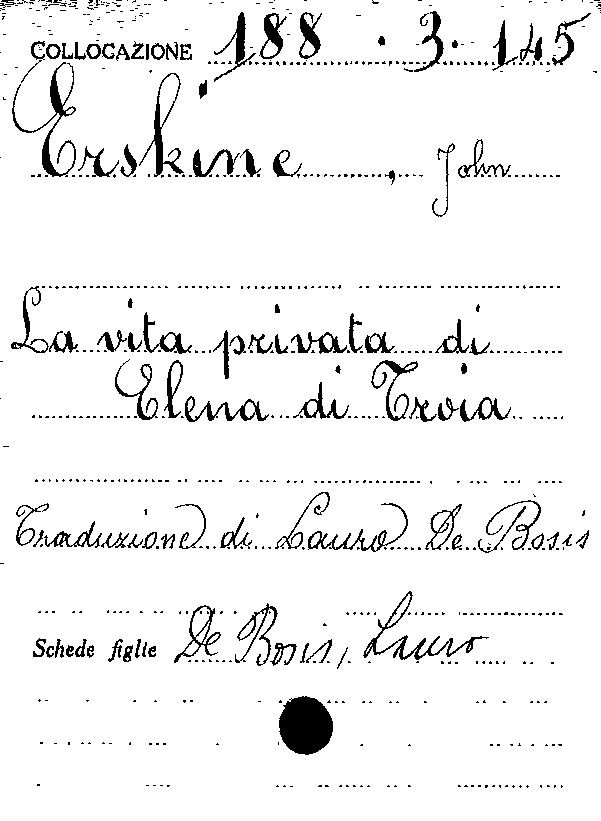 COLLOCAZIONE 188 . 3. 145
Erskine , John
La vita privata di
Elena di Troia
Traduzione di Lauro De Bosis
Schede figlie De Bosis, Lauro